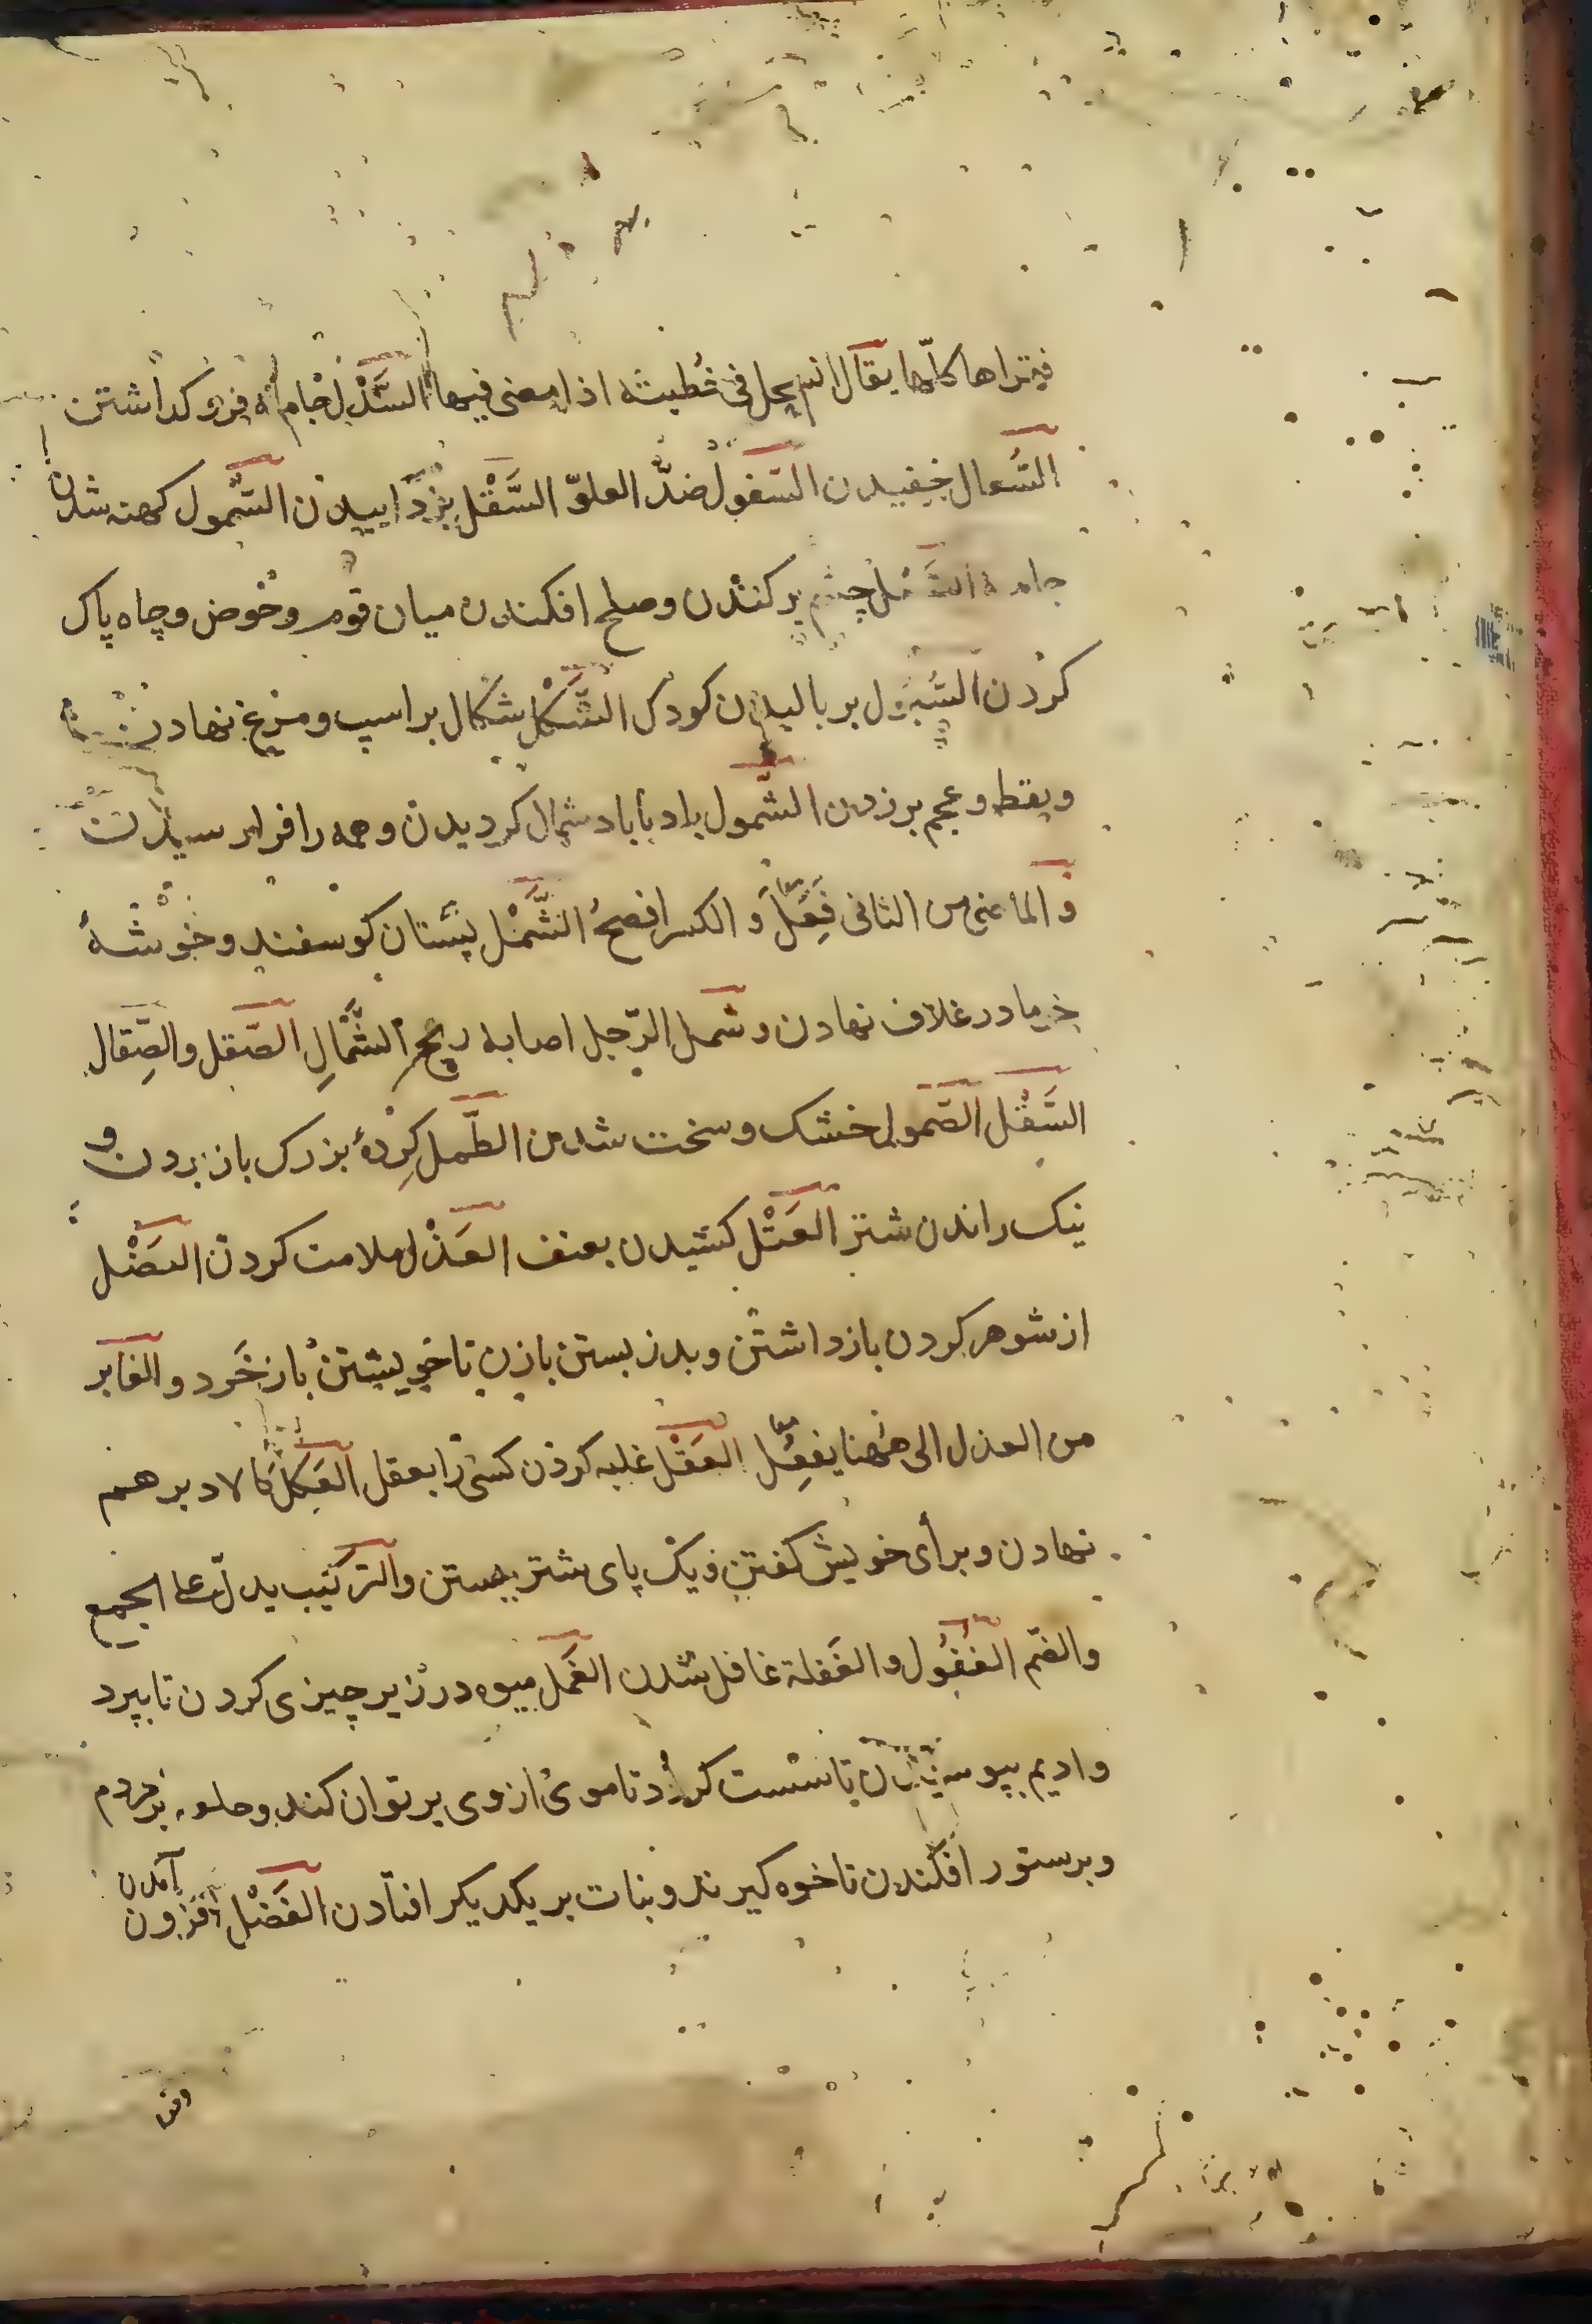 فيقراها كلّها يقال انه يجل فى خُطبته اذا مضى فيها السَّدْل جامه فرو كداشتن
السُّعال خفيدن السفول ضدّ العلوّ السَّقْل بزداييدن السُّمول كهنه شدن
جامه السَّمْل چشم بركندن وصلح افكندن ميان قوم وحوض وچاه پاك
كردن الشُبول برباليدن كودك الشَّكْل شكال براسپ ومرغ نهادن
ونقط وعجم برزدن الشُّمول باد باباد شمال كرديدن وهمه را فرارسيدن
والماضى من الثانى فَعِلَ والكسر افصحُ الشَّمْل پستان كوسفند وخوشهٔ
خرما در غلاف نهادن وشمل الرّجل اصابه ريح الشَّمالِ الصّقل والصِّقال
السَّقْل الصّمول خشك وسخت شدن الطّمل كِردهٔ بزرك باز بردن و
نيك راندن شتر العَتْل كشيدن بعنف العَذْل ملامت كردن العَضْل
از شوهر كردن بازداشتن وبدز بستن بازن تا خويشتن باز خَرد والغابر
من العذل الى ههنا يفعِل العَقْل غلبه كردن كسى را بعقل العَكْل كالا بر هم
نهادن وبرأى خويش كفتن ويك پاى شتر ببستن والتركيب يدلّ على الجمع
والضّم الغفُول والغَفلة غافل شدن الغَمْل ميوه در زير چيزى كردن تا بپرد
واديم بپوسانيدن تا سست كردد تا موى از وى برتوان كند وجامه بر مردم
وبرستور افكندن تا خوه كيرند ونبات بر يكديكر افتادن الفَضْل افزون آمدن